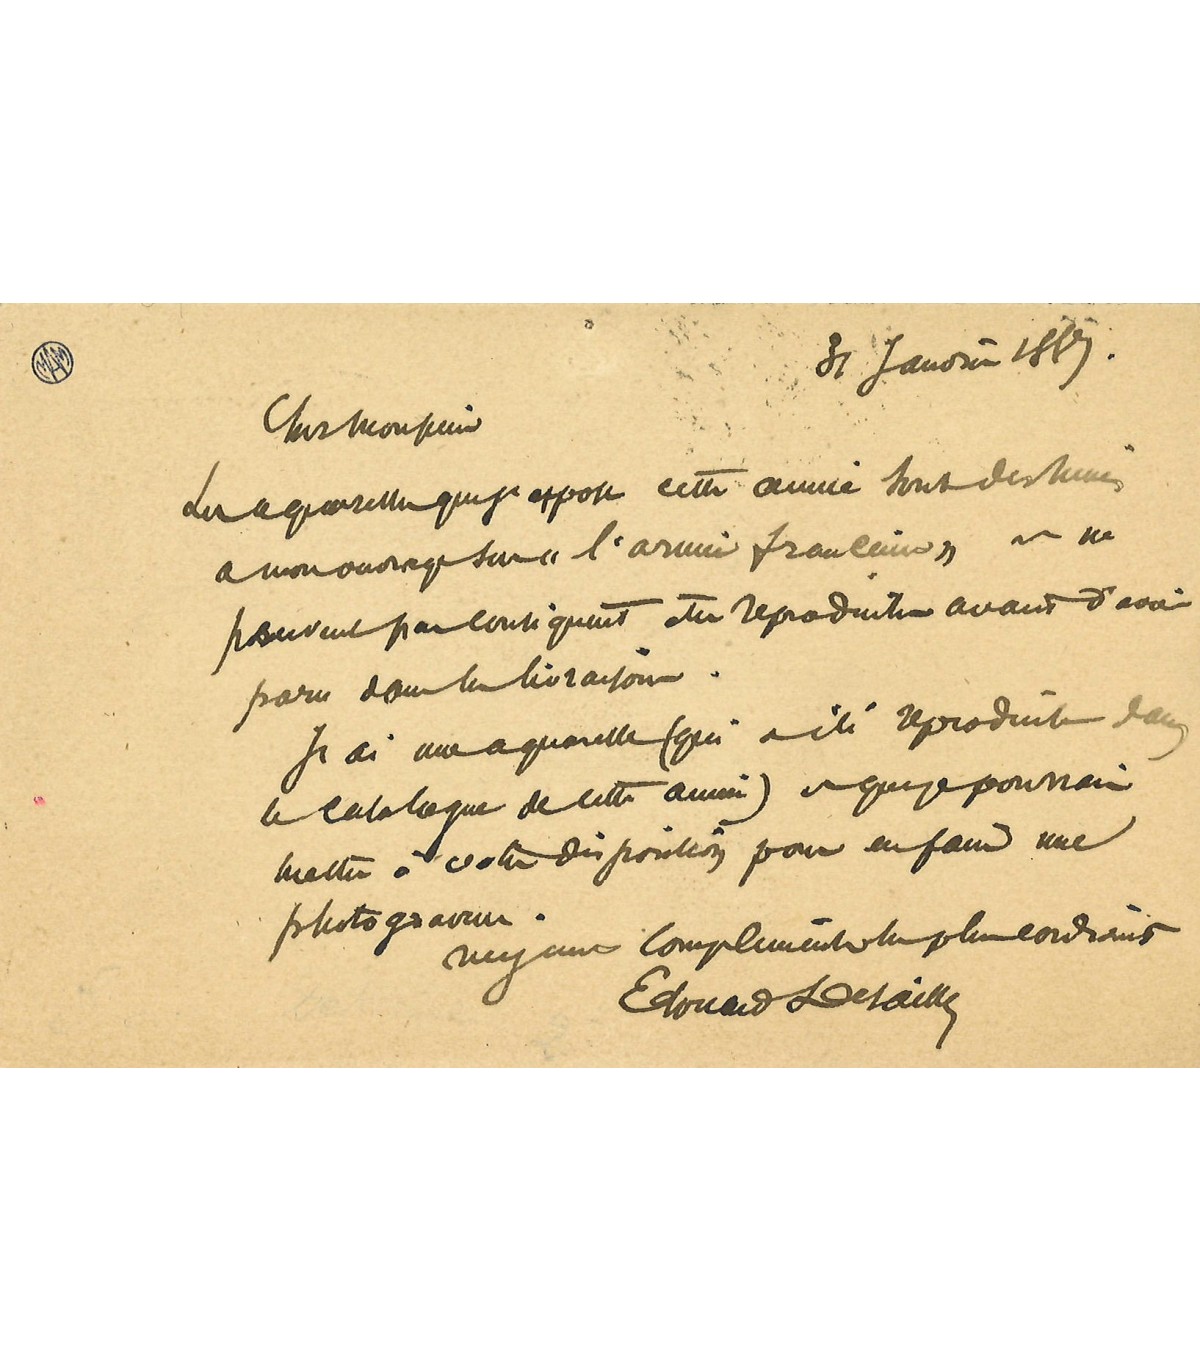 31 Janvier 1887.
Cher Monsieur
Les aquarelles que j'expose cette année sont destinées
a mon ouvrage sur "l'armée française" et ne
peuvent par conséquent être reproduites avant d'avoir
paru dans les livraisons.
J'ai une aquarelle (qui a été reproduite dans
le catalogue de cette année) et que je pourrais
mettre à votre disposition pour en faire une
photogravure.
compliments les plus cordiaux
Edouard Detaille